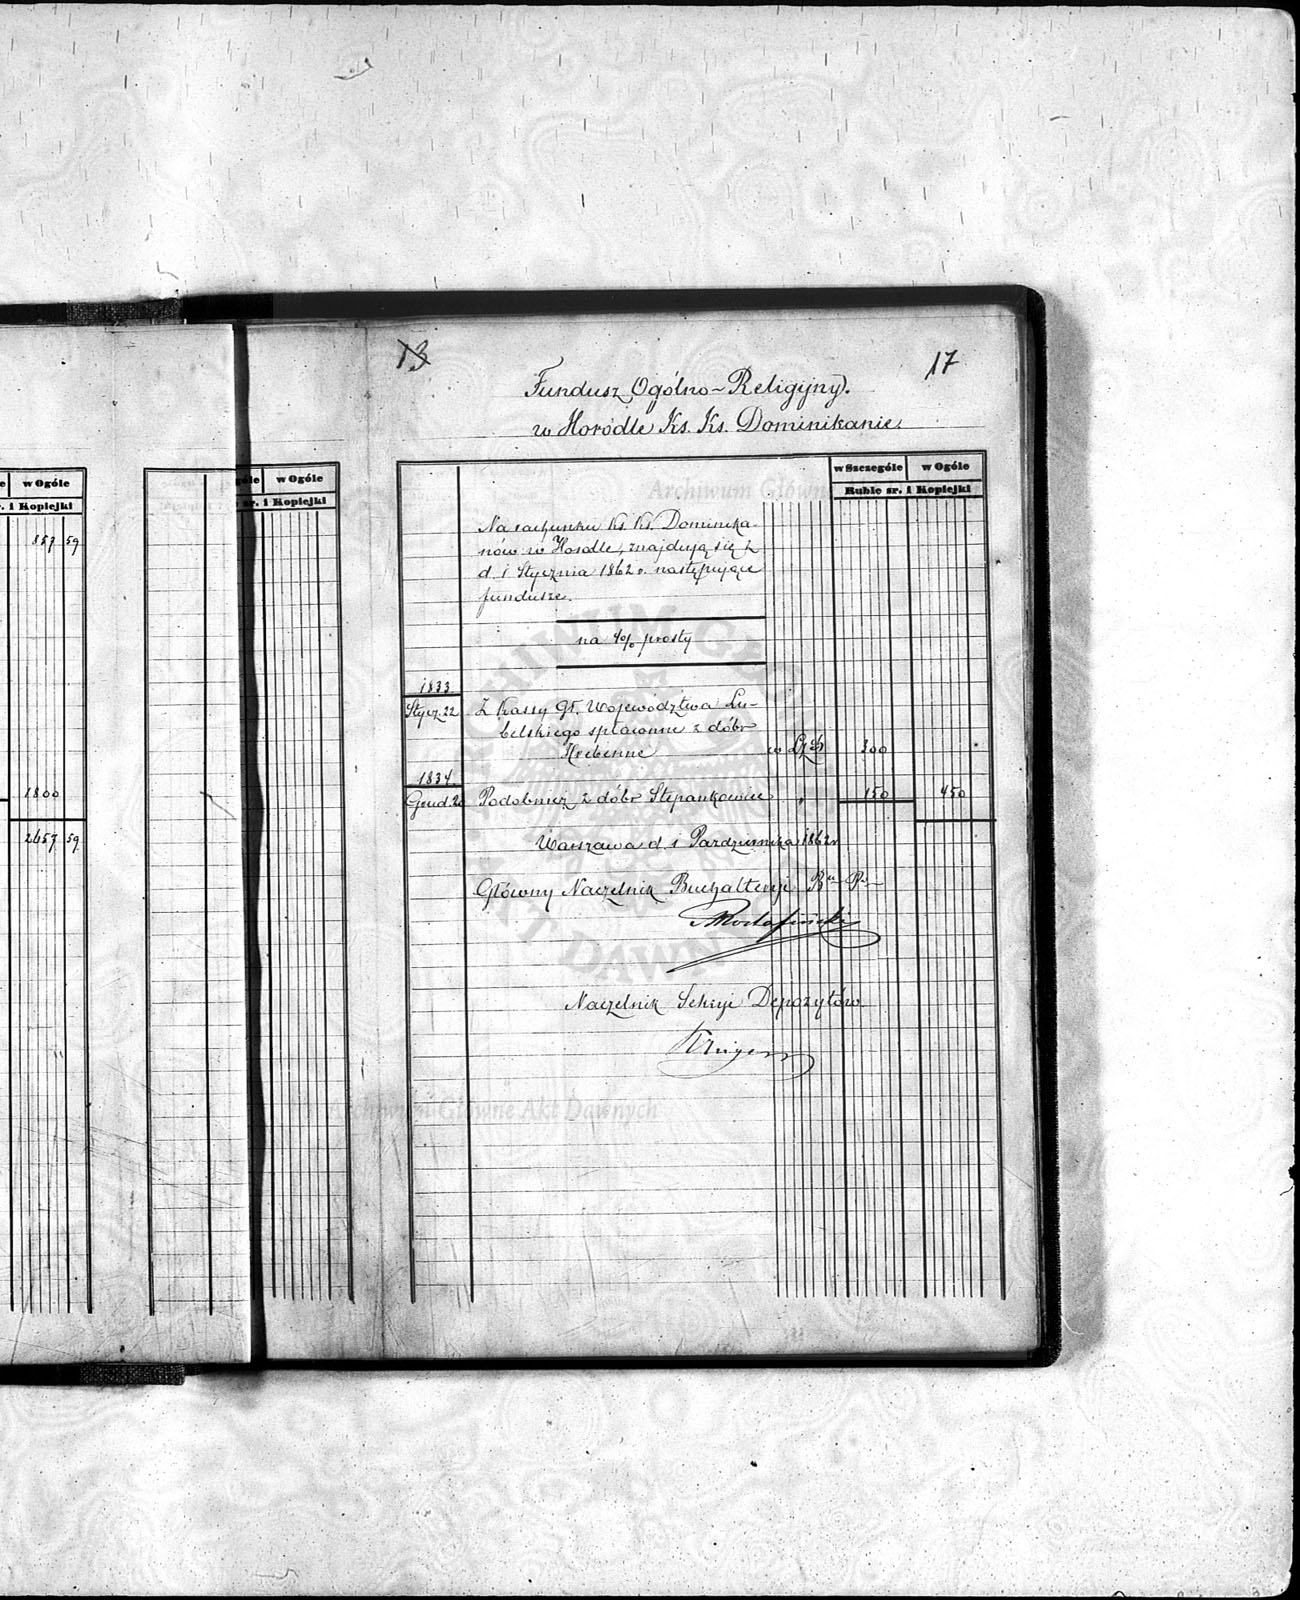 w Ogóle
r. i Kopiejki
857 59
1800
2657 59
w Ogóle
sr. i Kopiejki
13
17
Fundusz Ogólno-Religijny.
w Horodle Ks. Ks. Dominikanie.
w Szczególe w Ogóle
Ruble sr. i Kopiejki
Na rachunku Ks. Ks. Dominika-
nów w Horodle, znajdują się z
d. 1 Stycznia 1862 r. następujące
fundusze.
na 4% prosty
1833.
Stycz. 22 Z Kassy Gł. Województwa Lu-
belskiego spłacone z dóbr
Hrebenne w 300
1834.
Grud. 20 Podobnież z dóbr Stepankowice " 150 450
Warszawa d. 1 Października 1862 r
Główny Naczelnik Buchalteryi
Naczelnik Sekcyi Depozytów
Krüger
Archiwum Główne Akt Dawnych